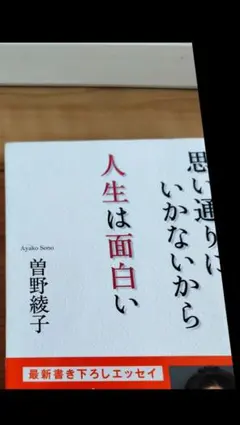 思い通りに
いかないから
人生は面白い
Ayako Sono
曽野綾子
最新書き下ろしエッセイ